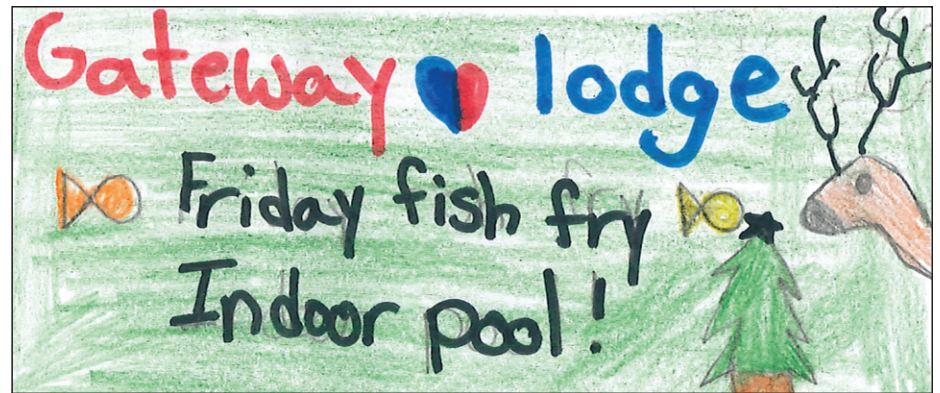 Gateway lodge
Friday fish fry
Indoor pool!